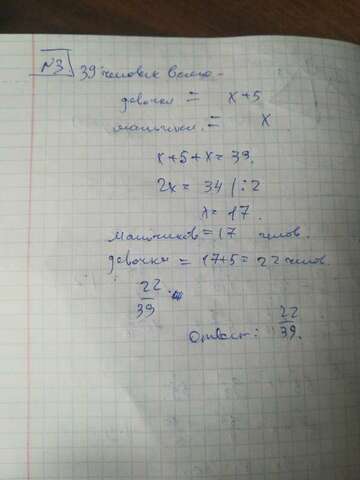 №3
39 человек всего.
девочки = x+5
мальчики. = x
x+5+x=39.
2x = 34 / :2
x = 17.
мальчиков = 17 челов.
девочки = 17+5 = 22 челов
22/39
Ответ: 22/39.